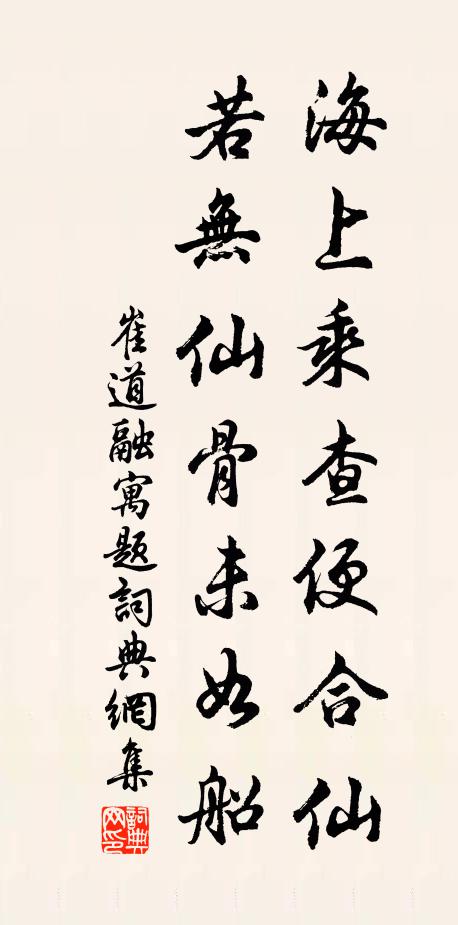 海上乘查便合仙
若無仙骨未如船
崔道融寓題詞典網集
詞典網印